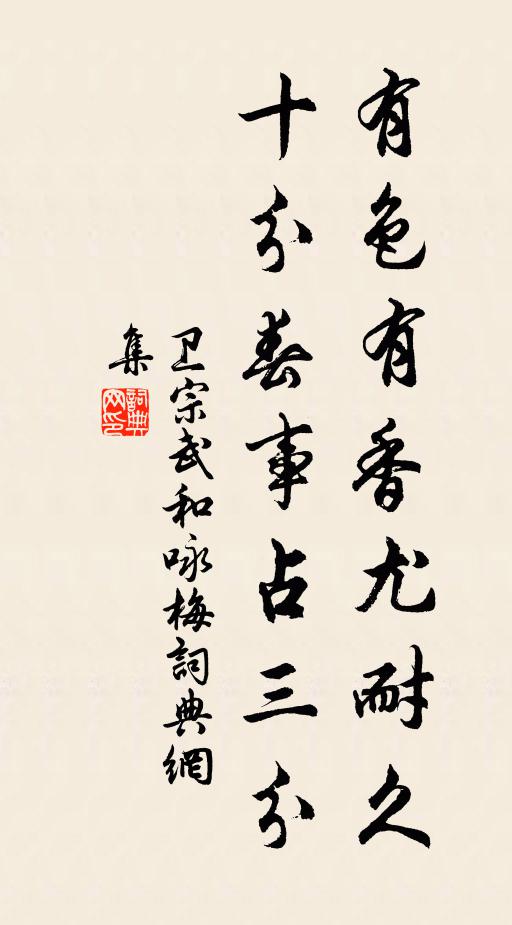 有色有香尤耐久
十分春事占三分
卫宗武和咏梅詞典網
集
詞典網印